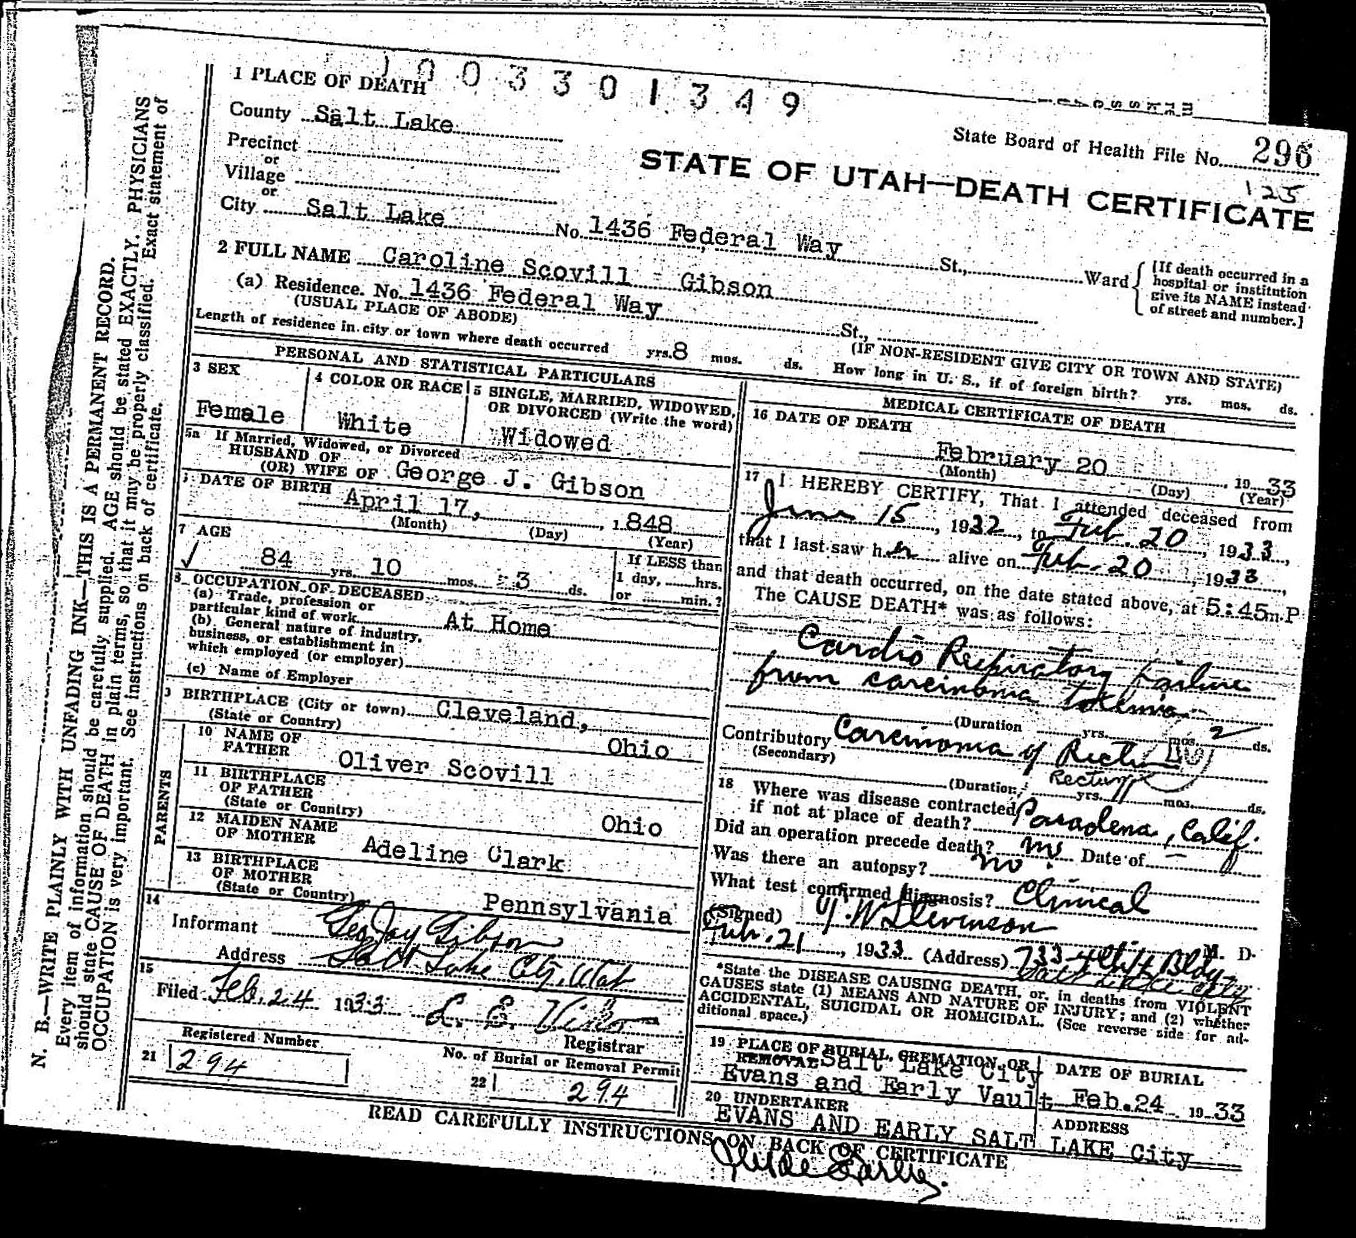 1003301349
1 PLACE OF DEATH
County Salt Lake
State Board of Health File No. 296
125
Precinct
or
Village
or
City Salt Lake No. 1436 Federal Way St., Ward
STATE OF UTAH—DEATH CERTIFICATE
{[If death occurred in a
hospital or institution
give its NAME instead
of street and number.]
2 FULL NAME Caroline Scovill - Gibson
(a) Residence. No. 1436 Federal Way St.,
(USUAL PLACE OF ABODE) (IF NON-RESIDENT GIVE CITY OR TOWN AND STATE)
Length of residence in city or town where death occurred yrs. 8 mos. ds. How long in U. S., if of foreign birth? yrs. mos. ds.
PERSONAL AND STATISTICAL PARTICULARS
3 SEX
Female
4 COLOR OR RACE
White
5 SINGLE, MARRIED, WIDOWED,
OR DIVORCED (Write the word)
Widowed
5a If Married, Widowed, or Divorced
HUSBAND OF
(OR) WIFE OF George J. Gibson
DATE OF BIRTH April 17, 1848
(Month) (Day) (Year)
7 AGE
84 yrs. 10 mos. 3 ds.
If LESS than
1 day, hrs.
or min.?
8 OCCUPATION OF DECEASED
(a) Trade, profession or
particular kind of work At Home
(b) General nature of industry,
business, or establishment in
which employed (or employer)
(c) Name of Employer
9 BIRTHPLACE (City or town) Cleveland,
(State or Country) Ohio
PARENTS
10 NAME OF
FATHER Oliver Scovill
11 BIRTHPLACE
OF FATHER
(State or Country) Ohio
12 MAIDEN NAME
OF MOTHER Adeline Clark
13 BIRTHPLACE
OF MOTHER
(State or Country) Pennsylvania
14
Informant Geo Jay Gibson
Address Salt Lake City, Utah
15
Filed Feb. 24 1933 L. E.
Registrar
Registered Number
21 294
No. of Burial or Removal Permit
22 294
MEDICAL CERTIFICATE OF DEATH
16 DATE OF DEATH
February 20 1933
(Month) (Day) (Year)
17 I HEREBY CERTIFY, That I attended deceased from
June 15, 1932, to Feb. 20, 1933,
that I last saw her alive on Feb. 20, 1933,
and that death occurred, on the date stated above, at 5:45m.P
The CAUSE DEATH* was as follows:
Cardio Respiratory Failure
from carcinoma
(Duration yrs. mos. 2 ds.
Contributory Carcinoma of
(Secondary)
Rectum
(Duration yrs. mos. ds.
18 Where was disease contracted
if not at place of death? Pasadena, Calif.
Did an operation precede death? no Date of —
Was there an autopsy? no
What test confirmed diagnosis? Clinical
(Signed) W Stevenson M. D.
Feb. 21, 1933 (Address) 733 Bldg
Salt Lake City
*State the DISEASE CAUSING DEATH, or, in deaths from VIOLENT
CAUSES state (1) MEANS AND NATURE OF INJURY; and (2) whether
ACCIDENTAL, SUICIDAL OR HOMICIDAL. (See reverse side for ad-
ditional space.)
19 PLACE OF BURIAL, CREMATION, OR
REMOVAL Salt Lake City
Evans and Early Vault
DATE OF BURIAL
Feb. 24 1933
20 UNDERTAKER
EVANS AND EARLY SALT LAKE City
ADDRESS
READ CAREFULLY INSTRUCTIONS ON BACK OF CERTIFICATE
N. B.—WRITE PLAINLY WITH UNFADING INK—THIS IS A PERMANENT RECORD.
Every item of information should be carefully supplied. AGE should be stated EXACTLY. PHYSICIANS
should state CAUSE OF DEATH in plain terms, so that it may be properly classified. Exact statement of
OCCUPATION is very important. See instructions on back of certificate.